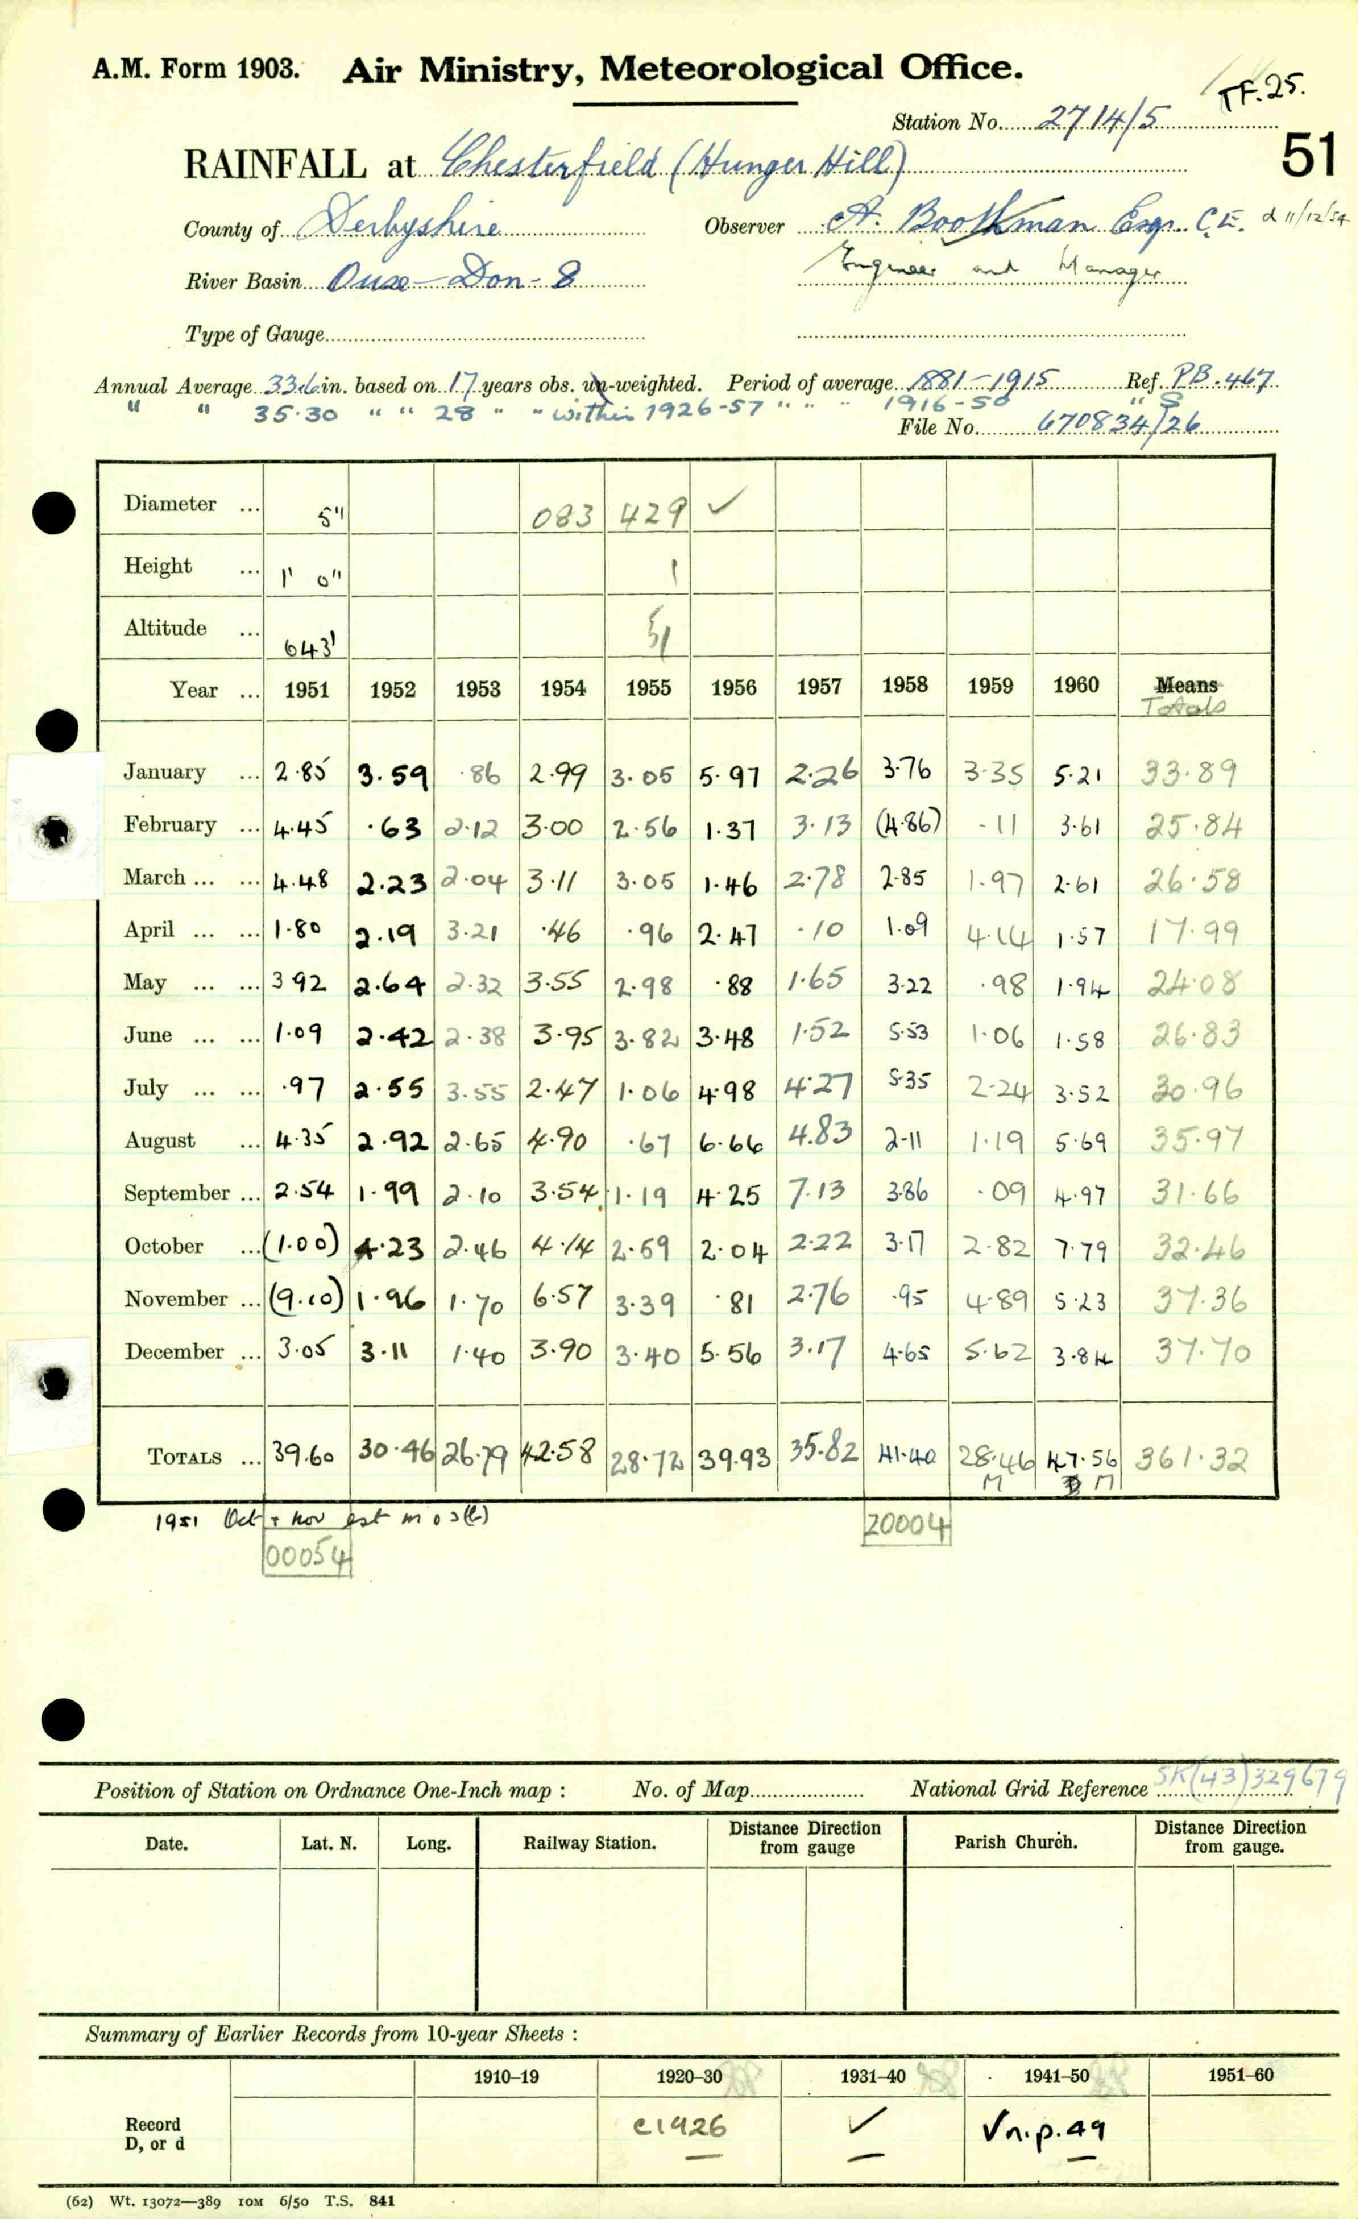 A.M. Form 1903. Air Ministry, Meteorological Office.
TF.25.
Station No. 2714/5
51
RAINFALL at Chesterfield (Hunger Hill)
County of Derbyshire Observer A. Boothman Esqr. C.E. d 11/12/54
River Basin Ouse-Don-8 Engineer and Manager
Type of Gauge
Annual Average 33.6 in. based on 17 years obs. un-weighted. Period of average 1881-1915 Ref. PB.467
" " 35.30 " " 28 " " within 1926-57 " " " 1916-50 " S
File No. 670834/26
Diameter ... 5" 083 429 ✓
Height ... 1' 0" 1
Altitude ... 643' 51
Year ... 1951 1952 1953 1954 1955 1956 1957 1958 1959 1960 Means
Totals
January ... 2.85 3.59 .86 2.99 3.05 5.97 2.26 3.76 3.35 5.21 33.89
February ... 4.45 .63 2.12 3.00 2.56 1.37 3.13 (4.86) .11 3.61 25.84
March ... ... 4.48 2.23 2.04 3.11 3.05 1.46 2.78 2.85 1.97 2.61 26.58
April ... ... 1.80 2.19 3.21 .46 .96 2.47 .10 1.09 4.14 1.57 17.99
May ... ... 3 92 2.64 2.32 3.55 2.98 .88 1.65 3.22 .98 1.94 24.08
June ... ... 1.09 2.42 2.38 3.95 3.82 3.48 1.52 5.53 1.06 1.58 26.83
July ... ... .97 2.55 3.55 2.47 1.06 4.98 4.27 5.35 2.24 3.52 30.96
August ... 4.35 2.92 2.65 4.90 .67 6.66 4.83 2.11 1.19 5.69 35.97
September ... 2.54 1.99 2.10 3.54 1.19 4.25 7.13 3.86 .09 4.97 31.66
October ... (1.00) 4.23 2.46 4.14 2.59 2.04 2.22 3.17 2.82 7.79 32.46
November ... (9.10) 1.96 1.70 6.57 3.39 .81 2.76 .95 4.89 5.23 37.36
December ... 3.05 3.11 1.40 3.90 3.40 5.56 3.17 4.65 5.62 3.84 37.70
TOTALS ... 39.60 30.46 26.79 42.58 28.72 39.93 35.82 41.40 28.46 47.56 361.32
M M
1951 Oct + Nov est m o s(6)
00054
20004
Position of Station on Ordnance One-Inch map : No. of Map National Grid Reference SK(43)329679
Date. Lat. N. Long. Railway Station. Distance Direction from gauge Parish Church. Distance Direction from gauge.
Summary of Earlier Records from 10-year Sheets :
1910–19 1920–30 1931–40 1941–50 1951–60
Record
D, or d
c1926 ✓ ✓n.p.49
(62) Wt. 13072—389 10M 6/50 T.S. 841